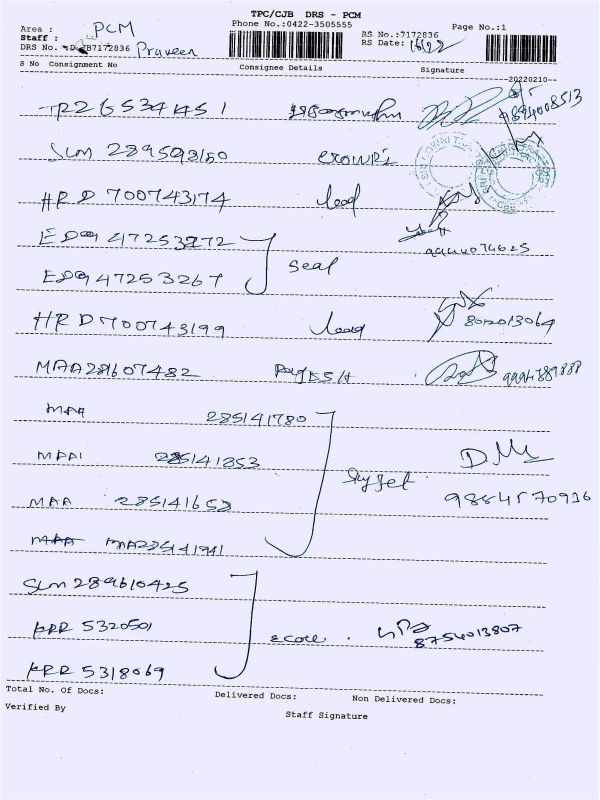 TPC/CJB DRS - PCM
Area : PCM Phone No.:0422-3505555 Page No.:1
Staff : Praveen RS No.:7172836
DRS No. 7172836 RS Date:
S No Consignment No Consignee Details Signature
20220210
265341451 9894008513
SLM 289593150
HRD 700743174 lead
EDQ 47253272
9444074625
EDQ 47253267 Seal
HRD 700743199 lead 8012013064
MAA 281607482
MAA 285141780
MAA 285141853 D.M
MAA 285141652 Skyjet 9884570916
MAA MAA285141941
SLM 289610425
KRR 5320501 Ecore 8754013807
KRR 5318069
Total No. Of Docs: Delivered Docs: Non Delivered Docs:
Verified By Staff Signature